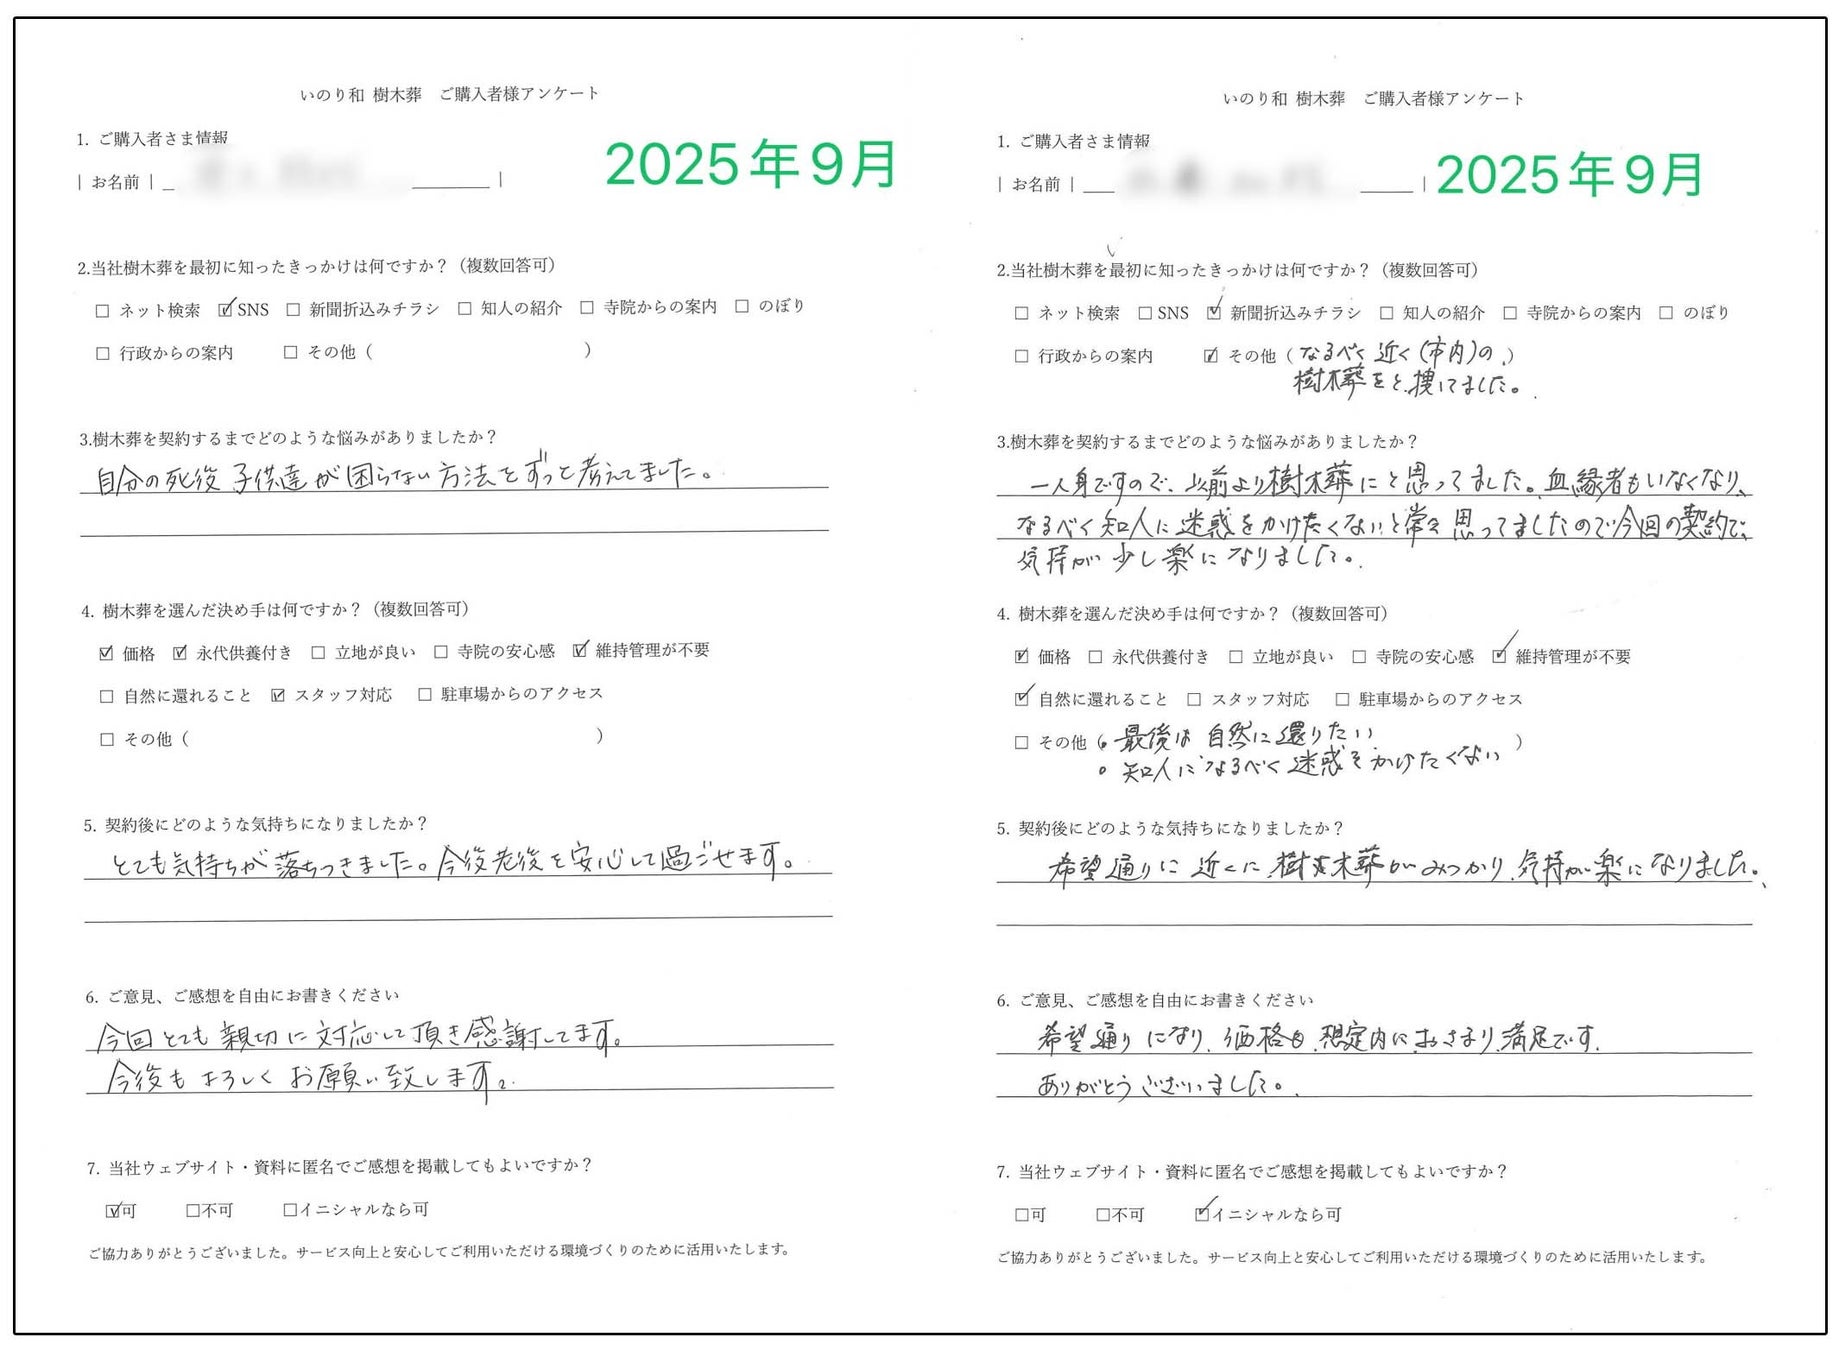 いのり和 樹木葬　ご購入者様アンケート
1. ご購入者さま情報
| お名前 |
2025年9月
2.当社樹木葬を最初に知ったきっかけは何ですか？（複数回答可）
☐ ネット検索 ☑ SNS ☐ 新聞折込みチラシ ☐ 知人の紹介 ☐ 寺院からの案内 ☐ のぼり
☐ 行政からの案内 ☐ その他（ ）
3.樹木葬を契約するまでどのような悩みがありましたか？
自分の死後 子供達が困らない方法をずっと考えてました。
4. 樹木葬を選んだ決め手は何ですか？（複数回答可）
☑ 価格 ☑ 永代供養付き ☐ 立地が良い ☐ 寺院の安心感 ☑ 維持管理が不要
☐ 自然に還れること ☑ スタッフ対応 ☐ 駐車場からのアクセス
☐ その他（ ）
5. 契約後にどのような気持ちになりましたか？
とても気持ちが落ちつきました。今後老後を安心して過ごせます。
6. ご意見、ご感想を自由にお書きください
今回とても親切に対応して頂き感謝してます。
今後もよろしくお願い致します。
7. 当社ウェブサイト・資料に匿名でご感想を掲載してもよいですか？
☑可 ☐不可 ☐イニシャルなら可
ご協力ありがとうございました。サービス向上と安心してご利用いただける環境づくりのために活用いたします。
いのり和 樹木葬　ご購入者様アンケート
1. ご購入者さま情報
| お名前 | |
2025年9月
2.当社樹木葬を最初に知ったきっかけは何ですか？（複数回答可）
☐ ネット検索 ☐ SNS ☑ 新聞折込みチラシ ☐ 知人の紹介 ☐ 寺院からの案内 ☐ のぼり
☐ 行政からの案内 ☑ その他（なるべく近く(市内)の、）
樹木葬をと、捜してました。
3.樹木葬を契約するまでどのような悩みがありましたか？
一人身ですので、以前より樹木葬にと思ってました。血縁者もいなくなり、
なるべく知人に迷惑をかけたくないと常々思ってましたので今回の契約で、
気持が少し楽になりました。
4. 樹木葬を選んだ決め手は何ですか？（複数回答可）
☑ 価格 ☐ 永代供養付き ☐ 立地が良い ☐ 寺院の安心感 ☑ 維持管理が不要
☑ 自然に還れること ☐ スタッフ対応 ☐ 駐車場からのアクセス
☐ その他（。最後は自然に還りたい ）
。知人になるべく迷惑をかけたくない
5. 契約後にどのような気持ちになりましたか？
希望通りに近くに、樹木葬がみつかり、気持が楽になりました。
6. ご意見、ご感想を自由にお書きください
希望通りになり、価格も、想定内におさまり、満足です。
ありがとうございました。
7. 当社ウェブサイト・資料に匿名でご感想を掲載してもよいですか？
☐可 ☐不可 ☑イニシャルなら可
ご協力ありがとうございました。サービス向上と安心してご利用いただける環境づくりのために活用いたします。